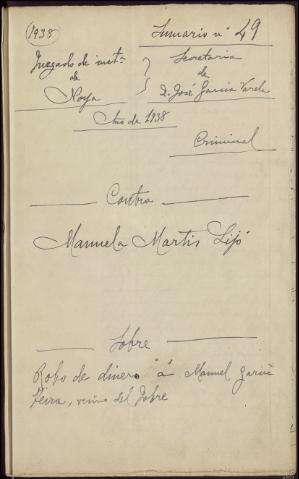 1938
Sumario nº 49
Juzgado de inst-
de
Noya
Secretaria
de
D. José Garcia Varela
Año de 1938
Criminal
Contra
Manuela Martis
Sobre
Robo de dinero "á" Manuel Garcia
del Sobre